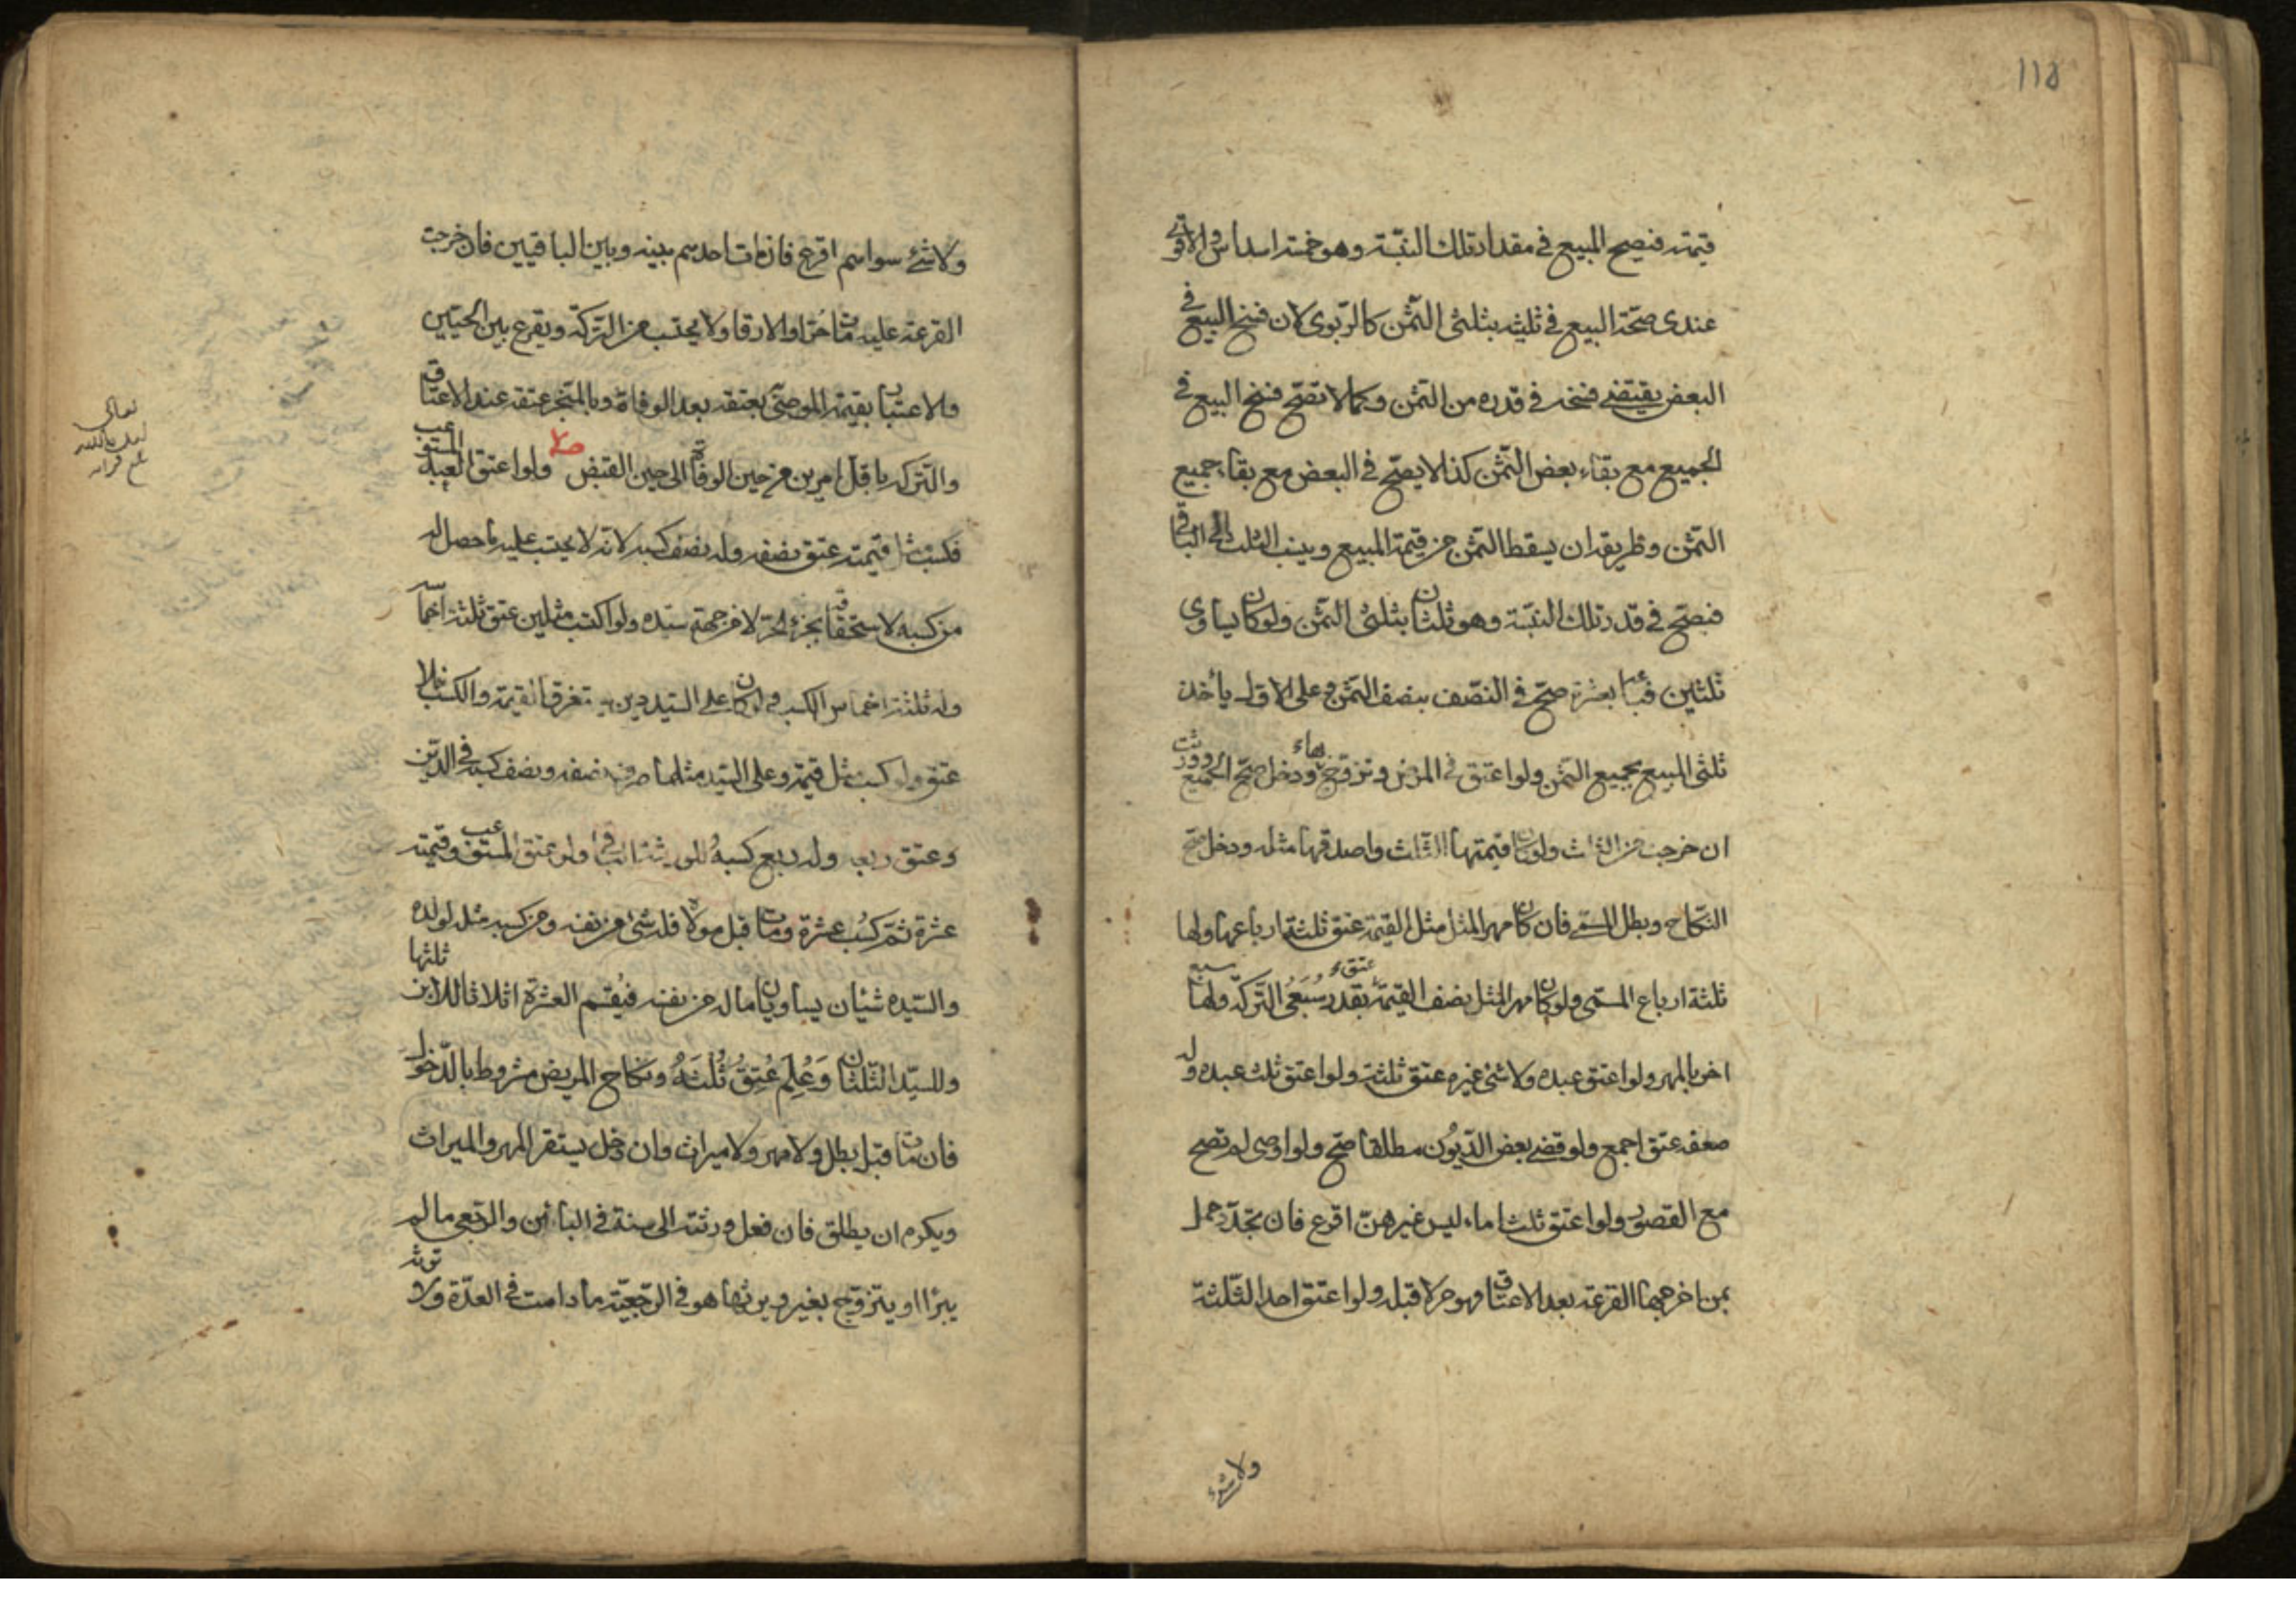 ١١٥
قيمته فيصح المبيع في مقدار تلك النسبة وهو خمسة اسداس والاقوى
عندى صحة البيع في ثلثيه بثلثى الثمن كالربوى لان فسخ البيع في
البعض يقتضى فسخه في قدره من الثمن وكما لا تصح فسخ البيع في
الجميع مع بقاء بعض الثمن كذا لا يصح في البعض مع بقاء جميع
الثمن وطريقه ان يسقط الثمن من قيمة المبيع وينسب الثلث الى الباقى
فيصح في قدر تلك النسبة وهو ثلثان بثلثى الثمن ولو كان يساوى
ثلثين فباعه بعشرة صح في النصف بنصف الثمن وعلى الاول يأخذ
ثلثى المبيع بجميع الثمن ولو اعتق في المرض وتزوج بها ودخل صح الجميع وورثت
ان خرجت من الثلث ولو كان قيمتها الثلث واصدقها مثله ودخل صح
النكاح وبطل المسمى فان كان مهر المثل مثل القيمة عتق ثلثة ارباعها ولها
ثلثة ارباع المسمى ولو كان مهر المثل نصف القيمة عتق بقدر سبعى التركة ولها سبع
اخر بالمهر ولو اعتق عبده ولا شئ غيره عتق ثلثه ولو اعتق ثلث عبده وله
ضعفه عتق اجمع ولو قضى بعض الديون مطلقا صح ولو اوصى لم تصح
مع القصور ولو اعتق ثلث اماء ليس غيرهن اقرع فان تجدد حمل
بمن اخرجها القرعة بعد الاعتاق فهو حر لا قبله ولو اعتق احد الثلثة
ولا شئ
ولا شئ سواهم اقرع فان مات احدهم بينه وبين الباقيين فان خرجت
القرعة عليه مات حرا والا رقا ولا يحتسب من التركة ويقرع بين الحيين
والاعتبار بقيمة الموصى بعتقه بعد الوفاة وبالمنجز عتقه عند الاعتاق
والتركة باقل امرين من حين الوفاة الى حين القبض ولو اعتق العبد المستوعب
فكسب مثل قيمته عتق نصفه وله نصف كسبه لانه لا يحتسب عليه ما حصل له
من كسبه لاستحقاقه بجزئه الحر لا من جهة سيده ولو اكتسب مثلين عتق ثلثة اخماسه
وله ثلثة اخماس الكسب ولو كان على السيد دين يستغرق القيمة والكسب فلا
عتق ولو كسب مثل قيمته وعلى السيد مثلها صرف نصفه ونصف كسبه في الدين
وعتق ربعه وله ربع كسبه وللورثة الباقى ولو عتق المستوعب وقيمته
عشرة ثم كسب عشرة ومات قبل مولاه فله شئ من نفسه ومن كسبه مثله لولده
والسيده شيئان يساويان ماله من نفسه فيقسم العشرة اثلاثا للابن ثلثها
وللسيد الثلثان وعلم عتق ثلثه ونكاح المريض مشروط بالدخول
فان مات قبل بطل ولا مهر ولا ميراث وان دخل يستقر المهر والميراث
ويكره ان يطلق فان فعل ورثته الى سنة في البائن والرجعى ما لم
يبرأ او يتزوج بغير ويرثها هو في الرجعية ما دامت في العدة ولا ترثه